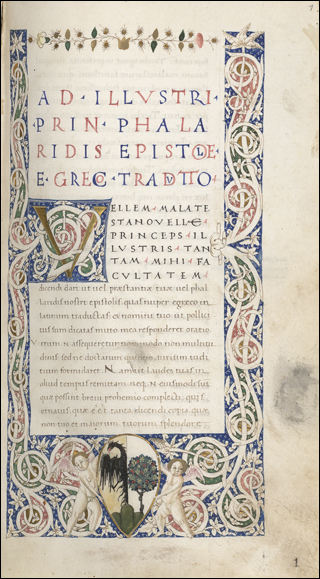 AD·ILLVSTRI
·PRIN·PHALA
RIDIS EPISTOLE
E·GRECO·TRADVTTO·
VELLEM MALATE
STA NOVELLE
PRINCEPS IL
LUSTRIS TAN
TAM MIHI FA
CULTATEM
dicendi dari ut vel præstantiæ tuæ vel phal
laridis nostri epistolis quas nuper e græco in
latinum traductas ex nomini tuo ut pollici
tus sum dicatas mitto mea responderet oratio
non assequeretur modo non multitu
N am et laudes tuas in
aliud tempus remittam neq. N. eiusmodi sūt
quæ possint brevi prohemio complecti, quis
ornatus quæ tanta dicendi copia quæ
non tuo et maiorum tuorum splendori
1